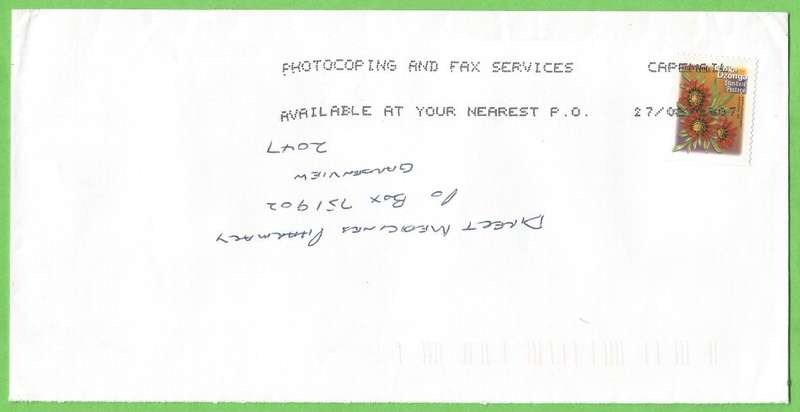 PHOTOCOPING AND FAX SERVICES CAPEMAIL
AVAILABLE AT YOUR NEAREST P.O. 27/0
Dzonga
Standard
Postage
DIRECT MEDICINES PHARMACY
PO BOX 751902
GARDENVIEW
2047